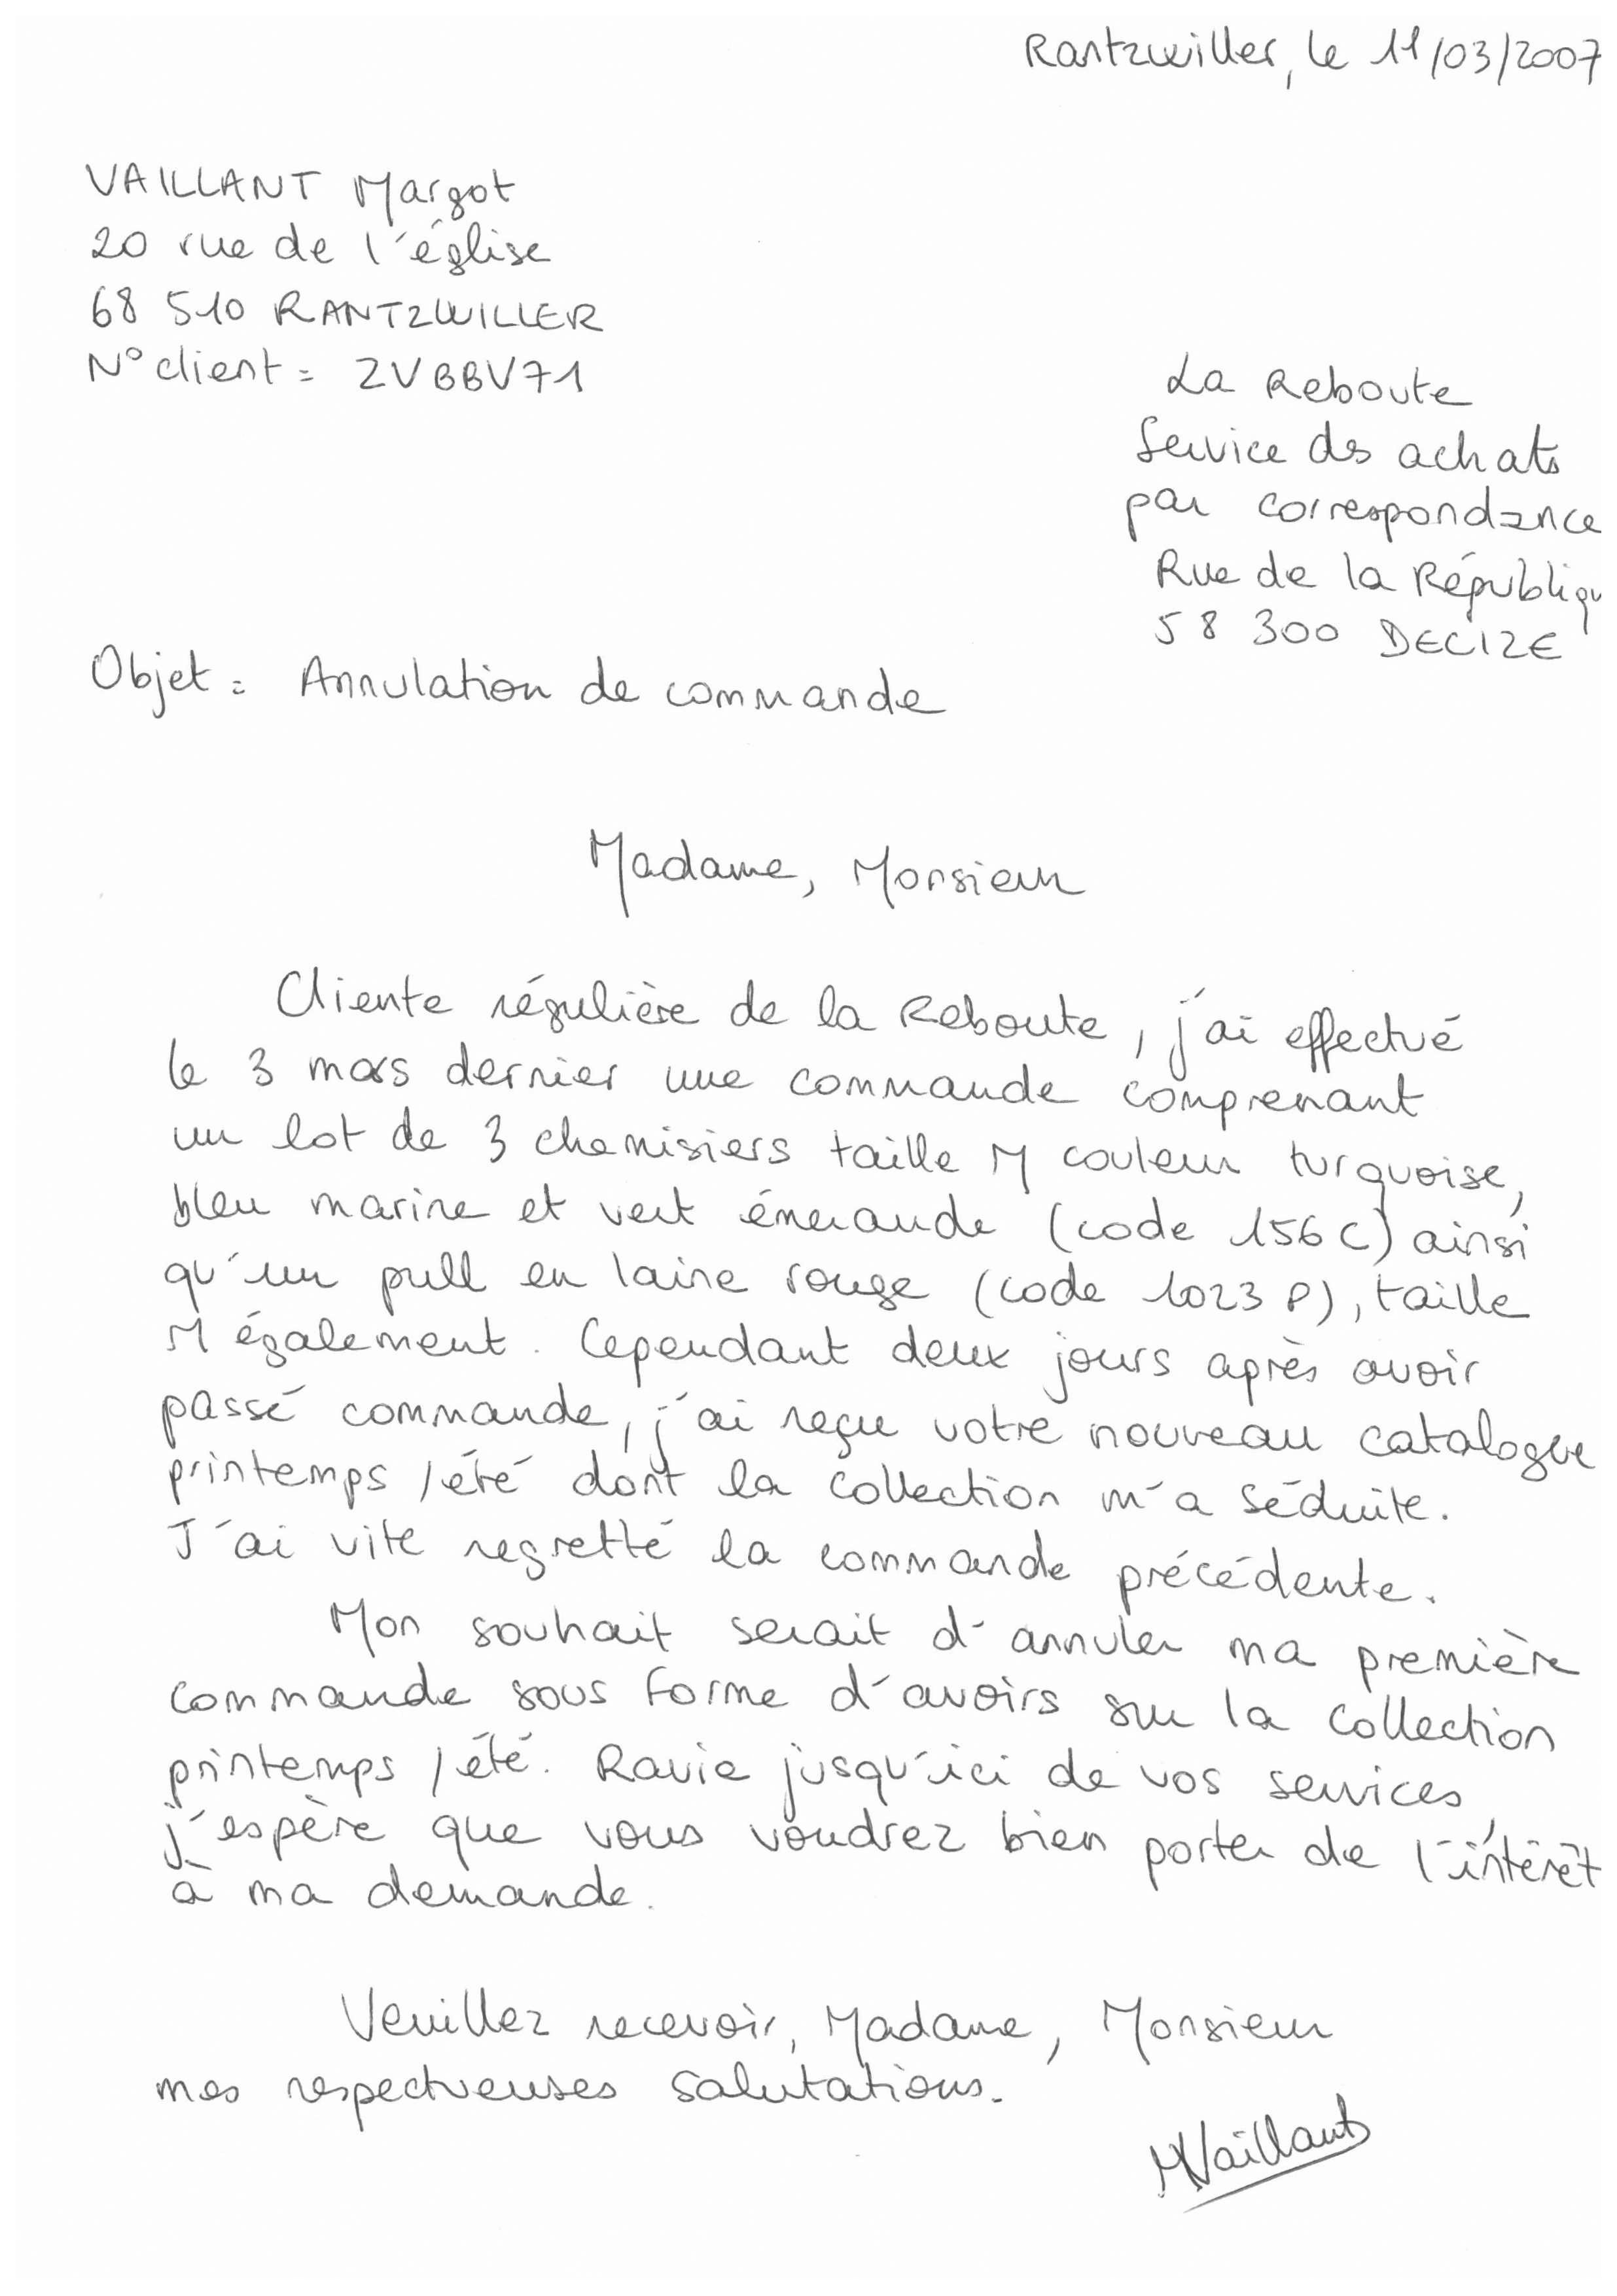 Rantzwiller, le 11/03/2007
VAILLANT Margot
20 rue de l'église
68 510 RANTZWILLER
N° client = ZVBBV71
La Reboute
Service des achats
par correspondance
Rue de la Républiqu
58 300 DECIZE
Objet = Annulation de commande
Madame, Monsieur
Cliente régulière de la Reboute, j'ai effectué
le 3 mars dernier une commande comprenant
un lot de 3 chemisiers taille M couleur turquoise,
bleu marine et vert émeraude (code 156 C) ainsi
qu'un pull en laine rouge (code 1023 P), taille
M également. Cependant deux jours après avoir
passé commande, j'ai reçu votre nouveau catalogue
printemps / été dont la collection m'a séduite.
J'ai vite regretté la commande précédente.
Mon souhait serait d'annuler ma première
commande sous forme d'avoirs sur la collection
printemps / été. Ravie jusqu'ici de vos services,
j'espère que vous voudrez bien porter de l'intérêt
à ma demande.
Veuillez recevoir, Madame, Monsieur
mes respectueuses salutations.
MVaillant